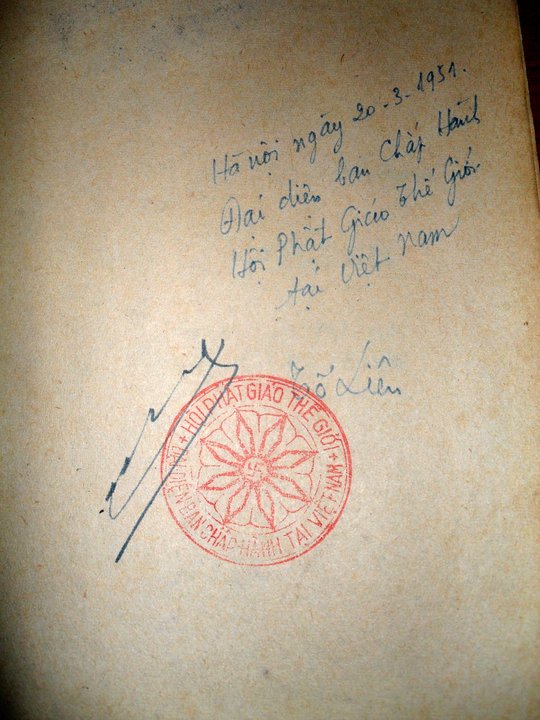 Hà nội ngày 20-3-1951.
Đại diện ban Chấp Hành
Hội Phật Giáo Thế Giới
tại Việt Nam
Tố Liên
+ HỘI PHẬT GIÁO THẾ GIỚI +
ĐẠI DIỆN BAN CHẤP HÀNH TẠI VIỆT NAM